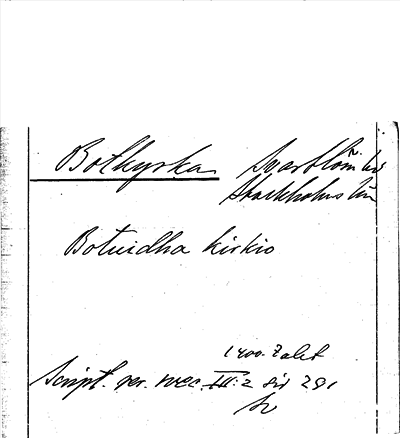 Botkyrka Svartlösa hd
Stockholms län
Botuidha kirkio
1400-talet
Script. rer. svec. III:2 sid 291